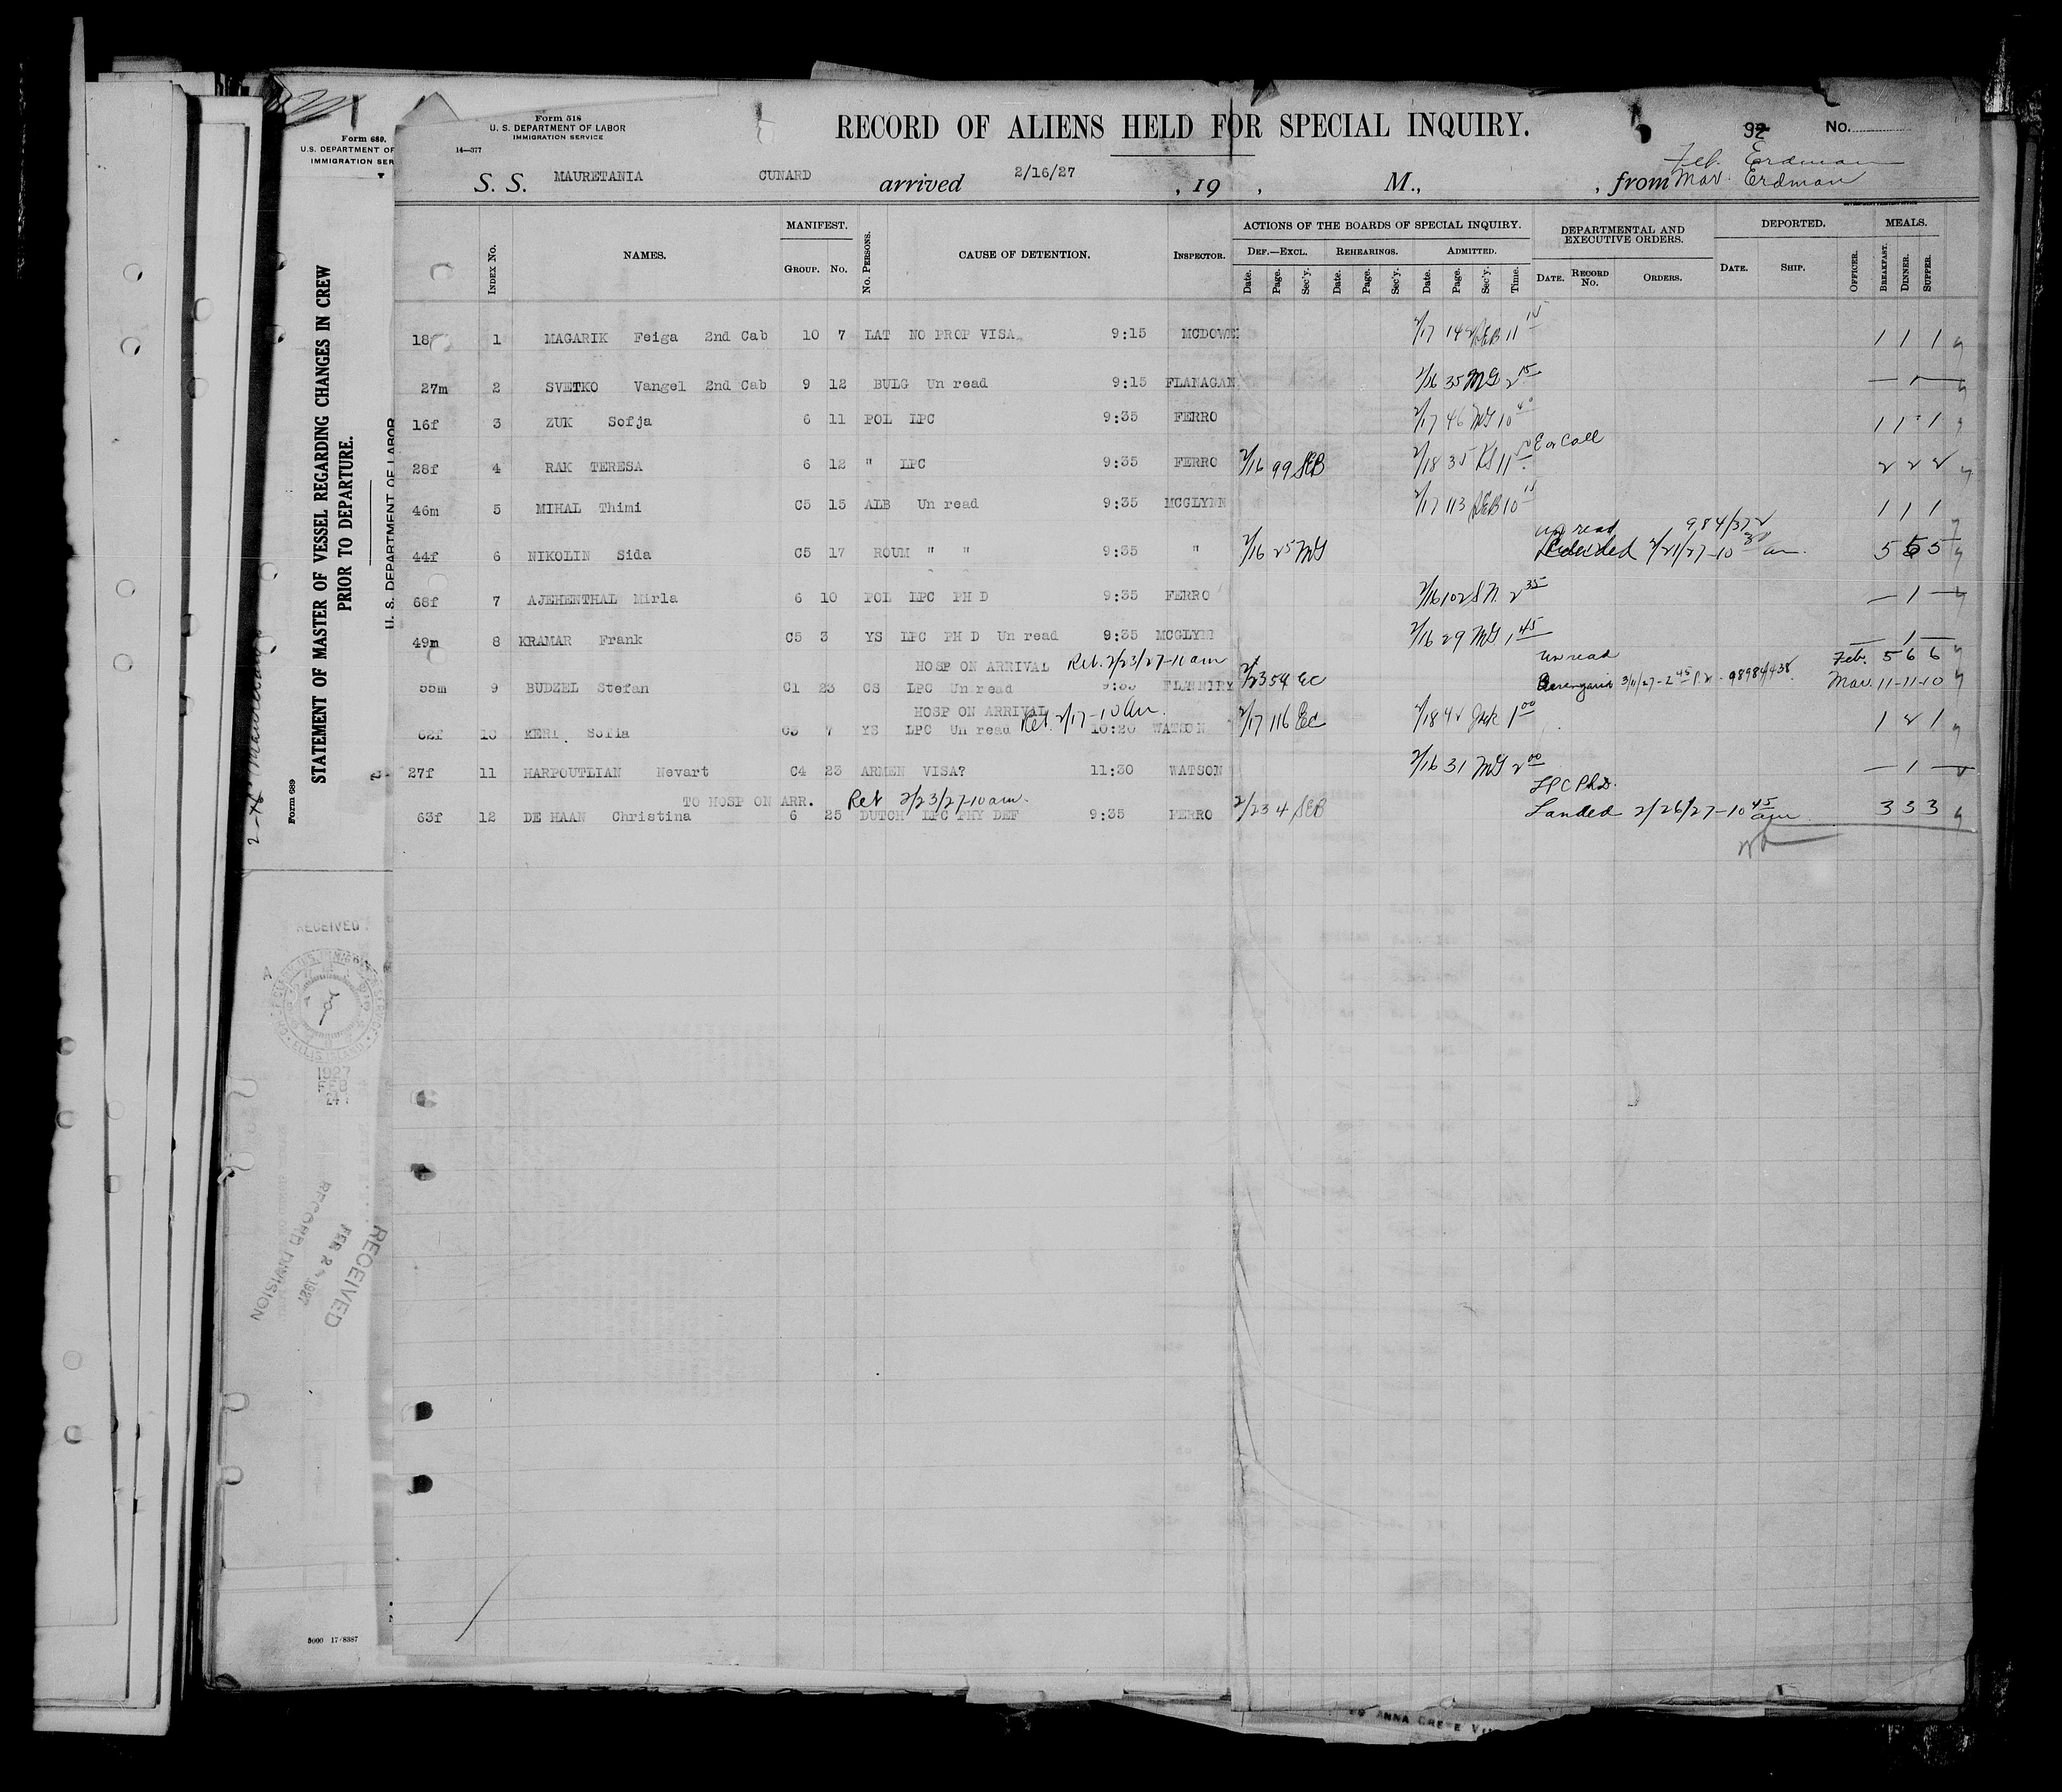 Form 689.
U.S. DEPARTMENT OF
IMMIGRATION SER
STATEMENT OF MASTER OF VESSEL REGARDING CHANGES IN CREW
PRIOR TO DEPARTURE.
U. S. DEPARTMENT OF LABOR
Form 689
RECEIVED
ELLIS ISLAND
1927
FEB
24
RECEIVED
FEB 2 1927
RECORD DIVISION
5000 17-8387
Form 518
U. S. DEPARTMENT OF LABOR
IMMIGRATION SERVICE
14—377
RECORD OF ALIENS HELD FOR SPECIAL INQUIRY.
92 No.
Feb. Erdman
S. S. MAURETANIA CUNARD arrived 2/16/27 , 19 , M., , from Mar. Erdman
Index No. NAMES. MANIFEST. GROUP. NO. No. Persons. CAUSE OF DETENTION. INSPECTOR. ACTIONS OF THE BOARDS OF SPECIAL INQUIRY. DEF.—EXCL. REHEARINGS. ADMITTED. DEPARTMENTAL AND EXECUTIVE ORDERS. DEPORTED. MEALS.
Date. Page. Sec'y. Date. Page. Sec'y. Date. Page. Sec'y. Time. DATE. RECORD NO. ORDERS. DATE. SHIP. OFFICER. BREAKFAST. DINNER. SUPPER.
18 1 MAGARIK Feiga 2nd Cab 10 7 LAT NO PROP VISA 9:15 MCDOWE 2/17 142 SEB 11 15 1 1 1
27m 2 SVETKO Vangel 2nd Cab 9 12 BULG Un read 9:15 FLANAGAN 2/16 35 MG 2 15 — 1 —
16f 3 ZUK Sofja 6 11 POL LPC 9:35 FERRO 2/17 46 MG 10 40 1 1 1
28f 4 RAK TERESA 6 12 " LPC 9:35 FERRO 2/16 99 SEB 2/18 35 KS 11 E or Call 2 2 2
46m 5 MIHAL Thimi C5 15 ALB Un read 9:35 MCGLYNN 2/17 113 SEB 10 15 1 1 1
un read 984/372
44f 6 NIKOLIN Sida C5 17 ROUM " " 9:35 " 2/16 25 MG 2/21/27-10 30 am. 5 5 5
68f 7 AJEHENTHAL Mirla 6 10 POL LPC PH D 9:35 FERRO 2/16 102 SN. 2 35 — 1 —
49m 8 KRAMAR Frank C5 3 YS LPC PH D Un read 9:35 MCGLYNN 2/16 29 MG 1 45 — 1 —
HOSP ON ARRIVAL Ret. 2/23/27-11 am Un read Feb. 5 6 6
55m 9 BUDZEL Stefan C1 23 CS LPC Un read 9:35 FLANNIRY 2/23 54 EC Berengaria 3/11/27-2 45 98984/438 Mar. 11-11-10
HOSP ON ARRIVAL Ret 2/17-10 am.
62f 10 KERL Sofia C3 7 YS LPC Un read 10:20 WATSON 2/17 116 EC 2/18 42 1 00 1 2 1
27f 11 HARPOUTLIAN Nevart C4 23 ARMEN VISA? 11:30 WATSON 2/16 31 MG 2 00 — 1 —
TO HOSP ON ARR. Ret 2/23/27-10 am. LPC Ph.D.
63f 12 DE HAAN Christina 6 25 DUTCH LPC PHY DEF 9:35 FERRO 2/23 4 SEB Landed 2/26/27-10 45 am 3 3 3